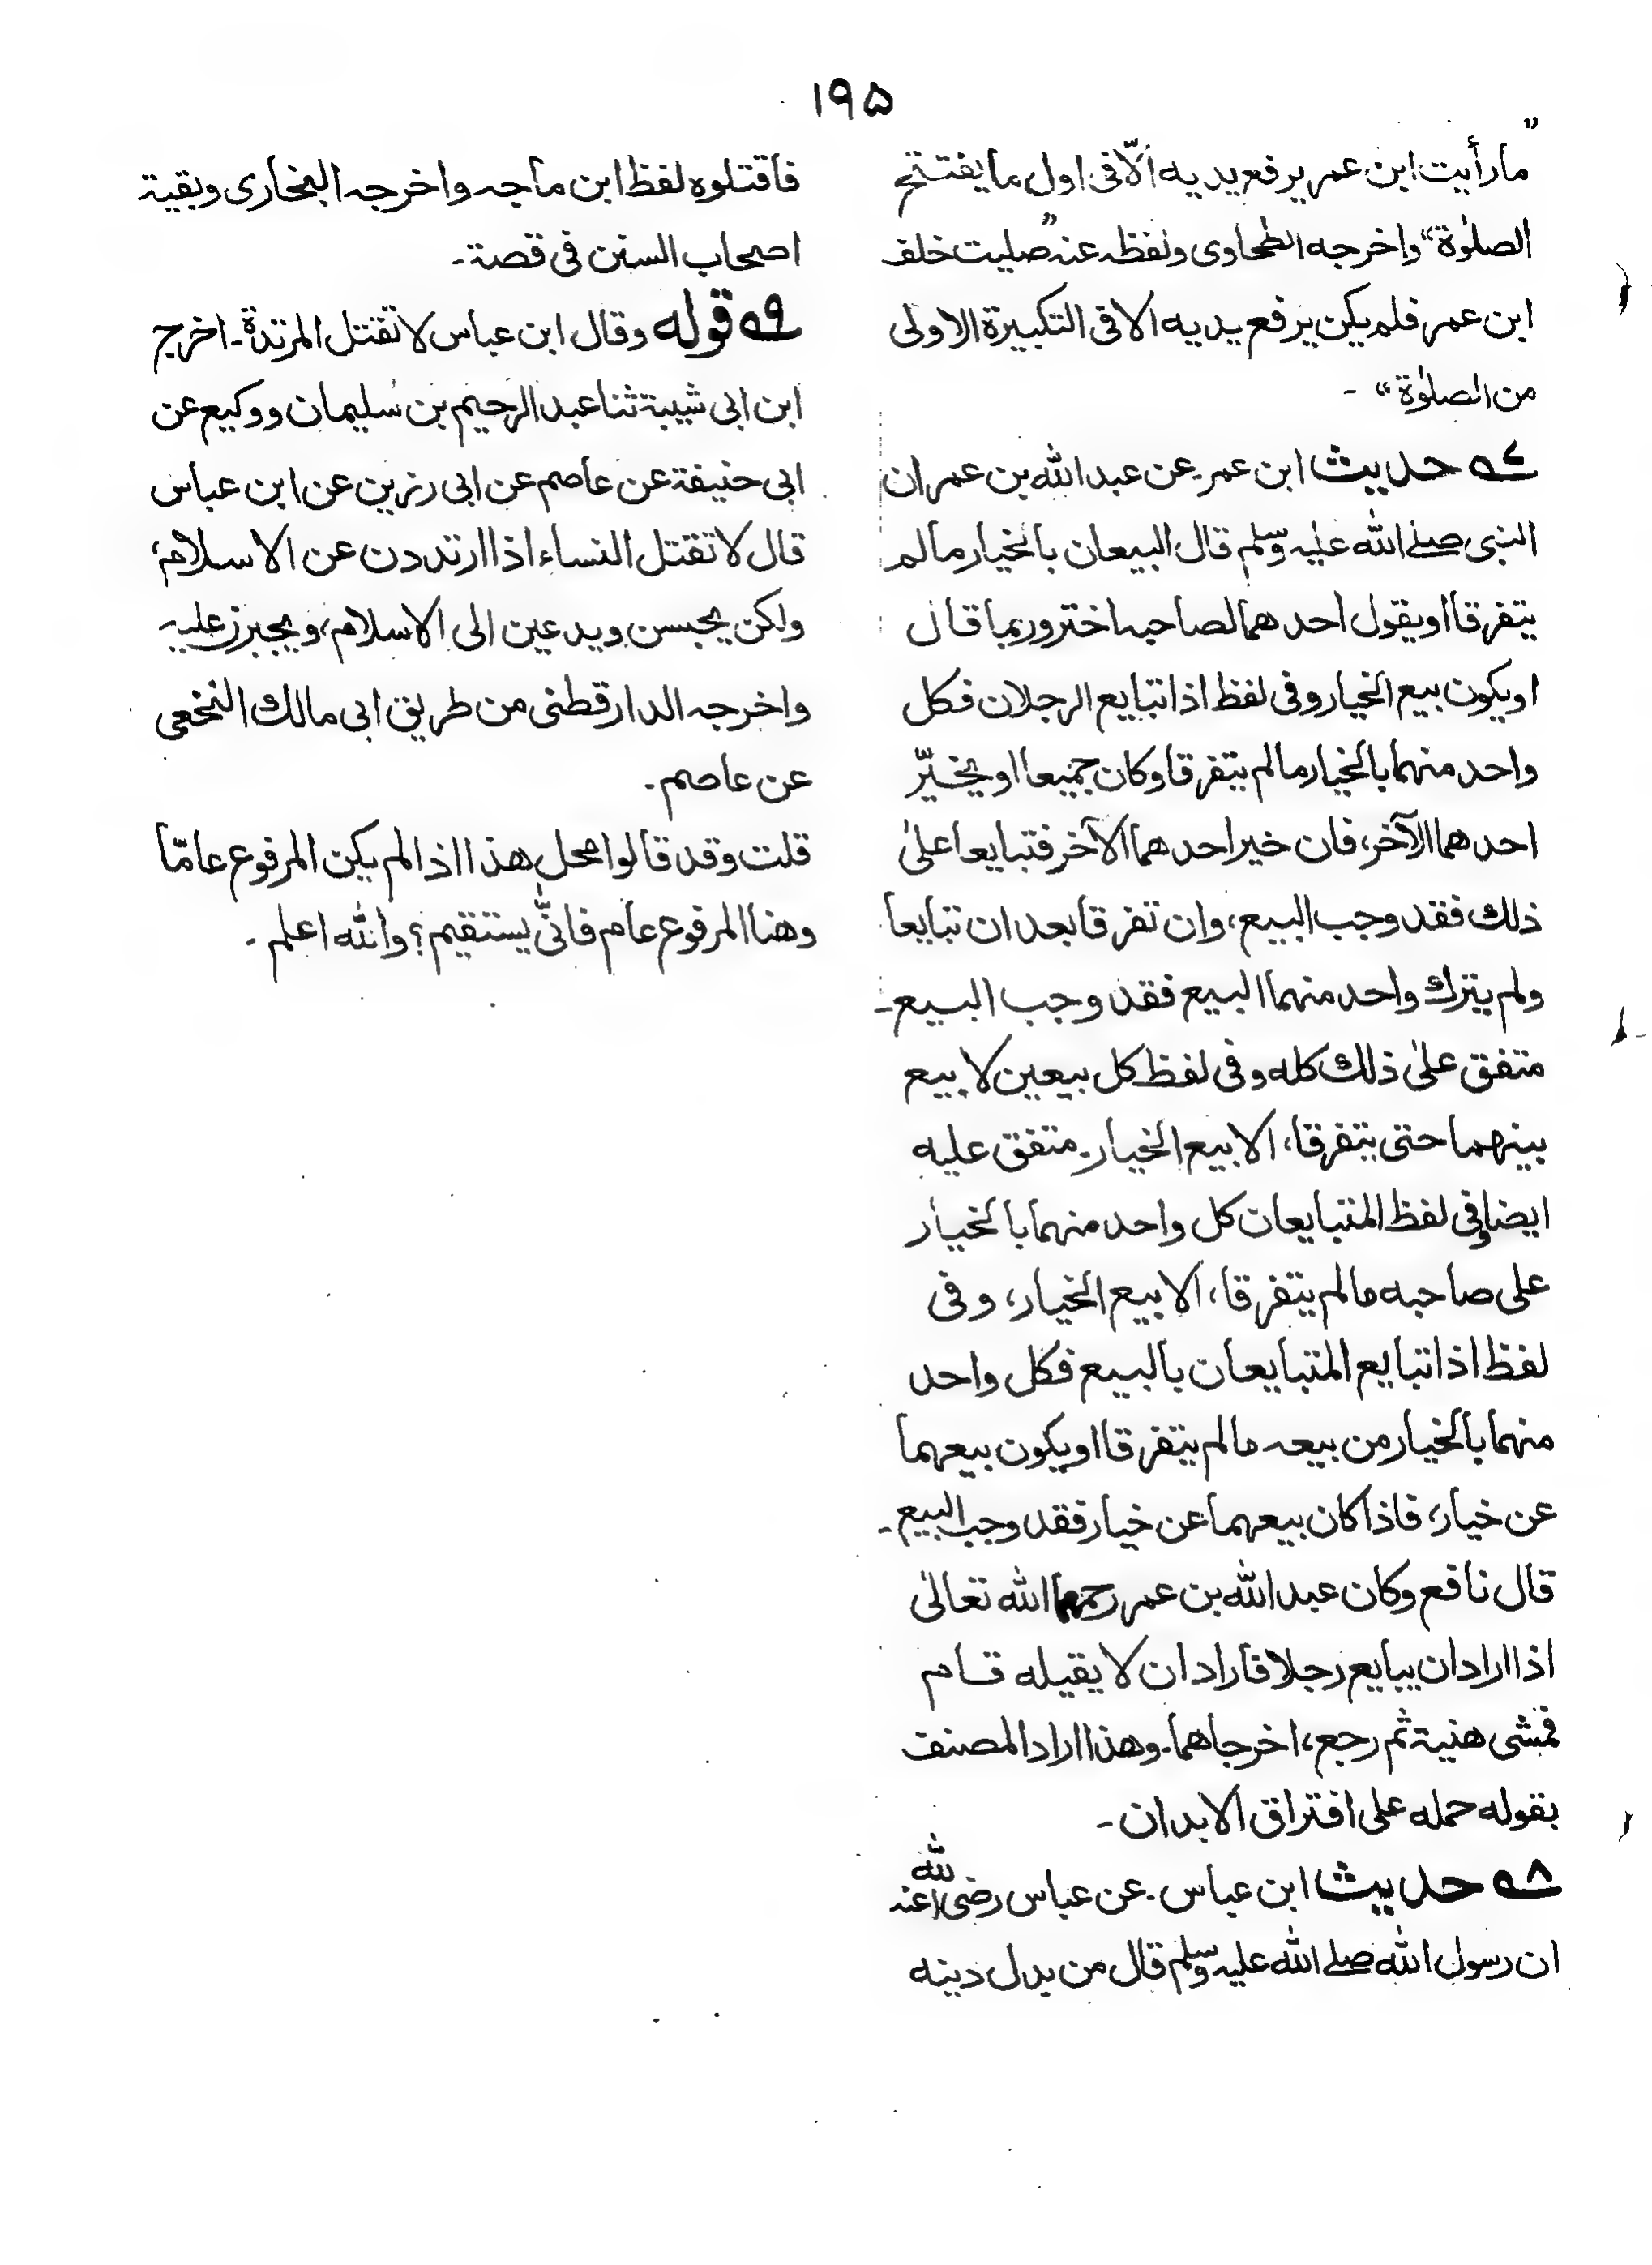 ۱۹۵
”مارأیت ابن عمر یرفع یدیه الّا فی اول ما یفتتح
الصلوٰة“ واخرجه الطحاوی ولفظه عنه ”صلیت خلف
ابن عمر فلم یکن یرفع یدیه الا فی التکبیرة الاولی
من الصلوٰة“ -
۷ حدیث ابن عمر- عن عبد الله بن عمر ان
النبی صلے الله علیه وسلم قال البیعان بالخیار مالم
یتفرقا او یقول احدهما لصاحبه اختر وربما قال
او یکون بیع الخیار وفی لفظ اذا تبایع الرجلان فکل
واحد منهما بالخیار مالم یتفرقا وکان جمیعا او یخیّر
احدهما الآخر، فان خیر احدهما الآخر فتبایعا علیٰ
ذلك فقد وجب البیع، وان تفرقا بعد ان تبایعا
ولم یترك واحد منهما البیع فقد وجب البیع-
متفق علیٰ ذلك کله وفی لفظ کل بیعین لا بیع
بینهما حتی یتفرقا، الا بیع الخیار- متفق علیه
ایضا وفی لفظ المتبایعان کل واحد منهما بالخیار
علی صاحبه مالم یتفرقا، الا بیع الخیار، وفی
لفظ اذا تبایع المتبایعان بالبیع فکل واحد
منهما بالخیار من بیعه مالم یتفرقا او یکون بیعهما
عن خیار، فاذا کان بیعهما عن خیار فقد وجب البیع-
قال نافع وکان عبد الله بن عمر رحمهما الله تعالیٰ
اذا اراد ان یبایع رجلا فاراد ان لا یقیله قام
فمشی هنیة ثم رجع، اخرجاهما- وهذا اراد المصنف
بقوله حمله علی افتراق الابدان-
۸ حدیث ابن عباس- عن عباس رضی الله عنه
ان رسول الله صلے الله علیه وسلم قال من بدل دینه
فاقتلوه لفظ ابن ماجه واخرجه البخاری وبقیة
اصحاب السنن فی قصة-
۹ قوله وقال ابن عباس لا تقتل المرتدة- اخرج
ابن ابی شیبة ثنا عبد الرحیم بن سلیمان ووکیع عن
ابی حنیفة عن عاصم عن ابی رزین عن ابن عباس
قال لا تقتل النساء اذا ارتددن عن الاسلام،
ولکن یحبسن ویدعین الی الاسلام، ویجبرن علیه
واخرجه الدارقطنی من طریق ابی مالك النخعی
عن عاصم-
قلت وقد قالوا محل هذا اذا لم یکن المرفوع عامّا
وهنا المرفوع عام فانّی یستقیم؟ والله اعلم-